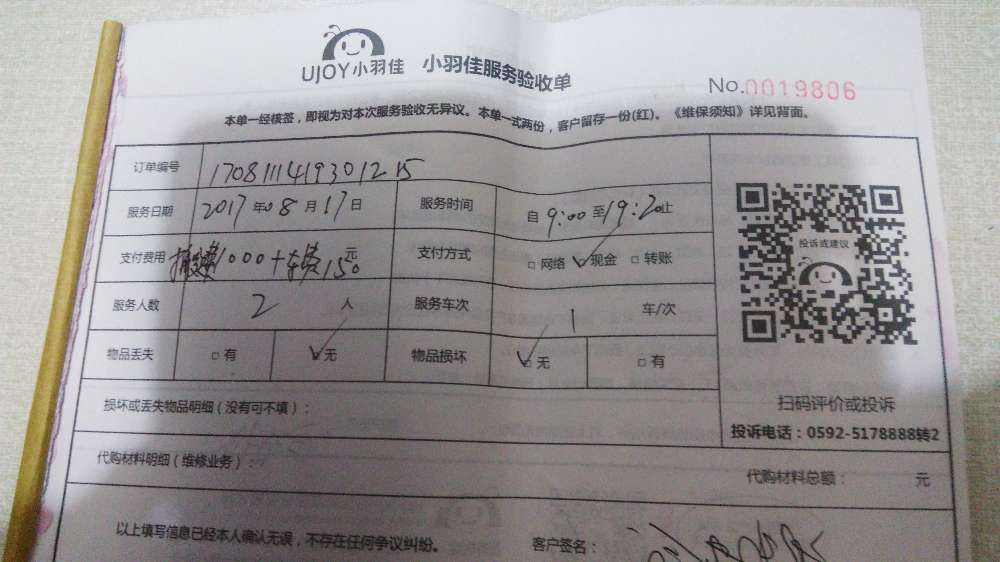 UJOY小羽佳 小羽佳服务验收单 No.0019806
本单一经核签，即视为对本次服务验收无异议。本单一式两份，客户留存一份(红)。《维保须知》详见背面。
订单编号 1708111419301215
服务日期 2017年08月17日 服务时间 自9:00至19:20止
支付费用 搬家费1000+车费150元 支付方式 □网络 ☑现金 □转账
服务人数 2 人 服务车次 1 车/次
物品丢失 □有 ☑无 物品损坏 ☑无 □有
投诉或建议
扫码评价或投诉
投诉电话：0592-5178888转2
损坏或丢失物品明细（没有可不填）：
代购材料明细（维修业务）： 代购材料总额： 元
以上填写信息已经本人确认无误，不存在任何争议纠纷。 客户签名：